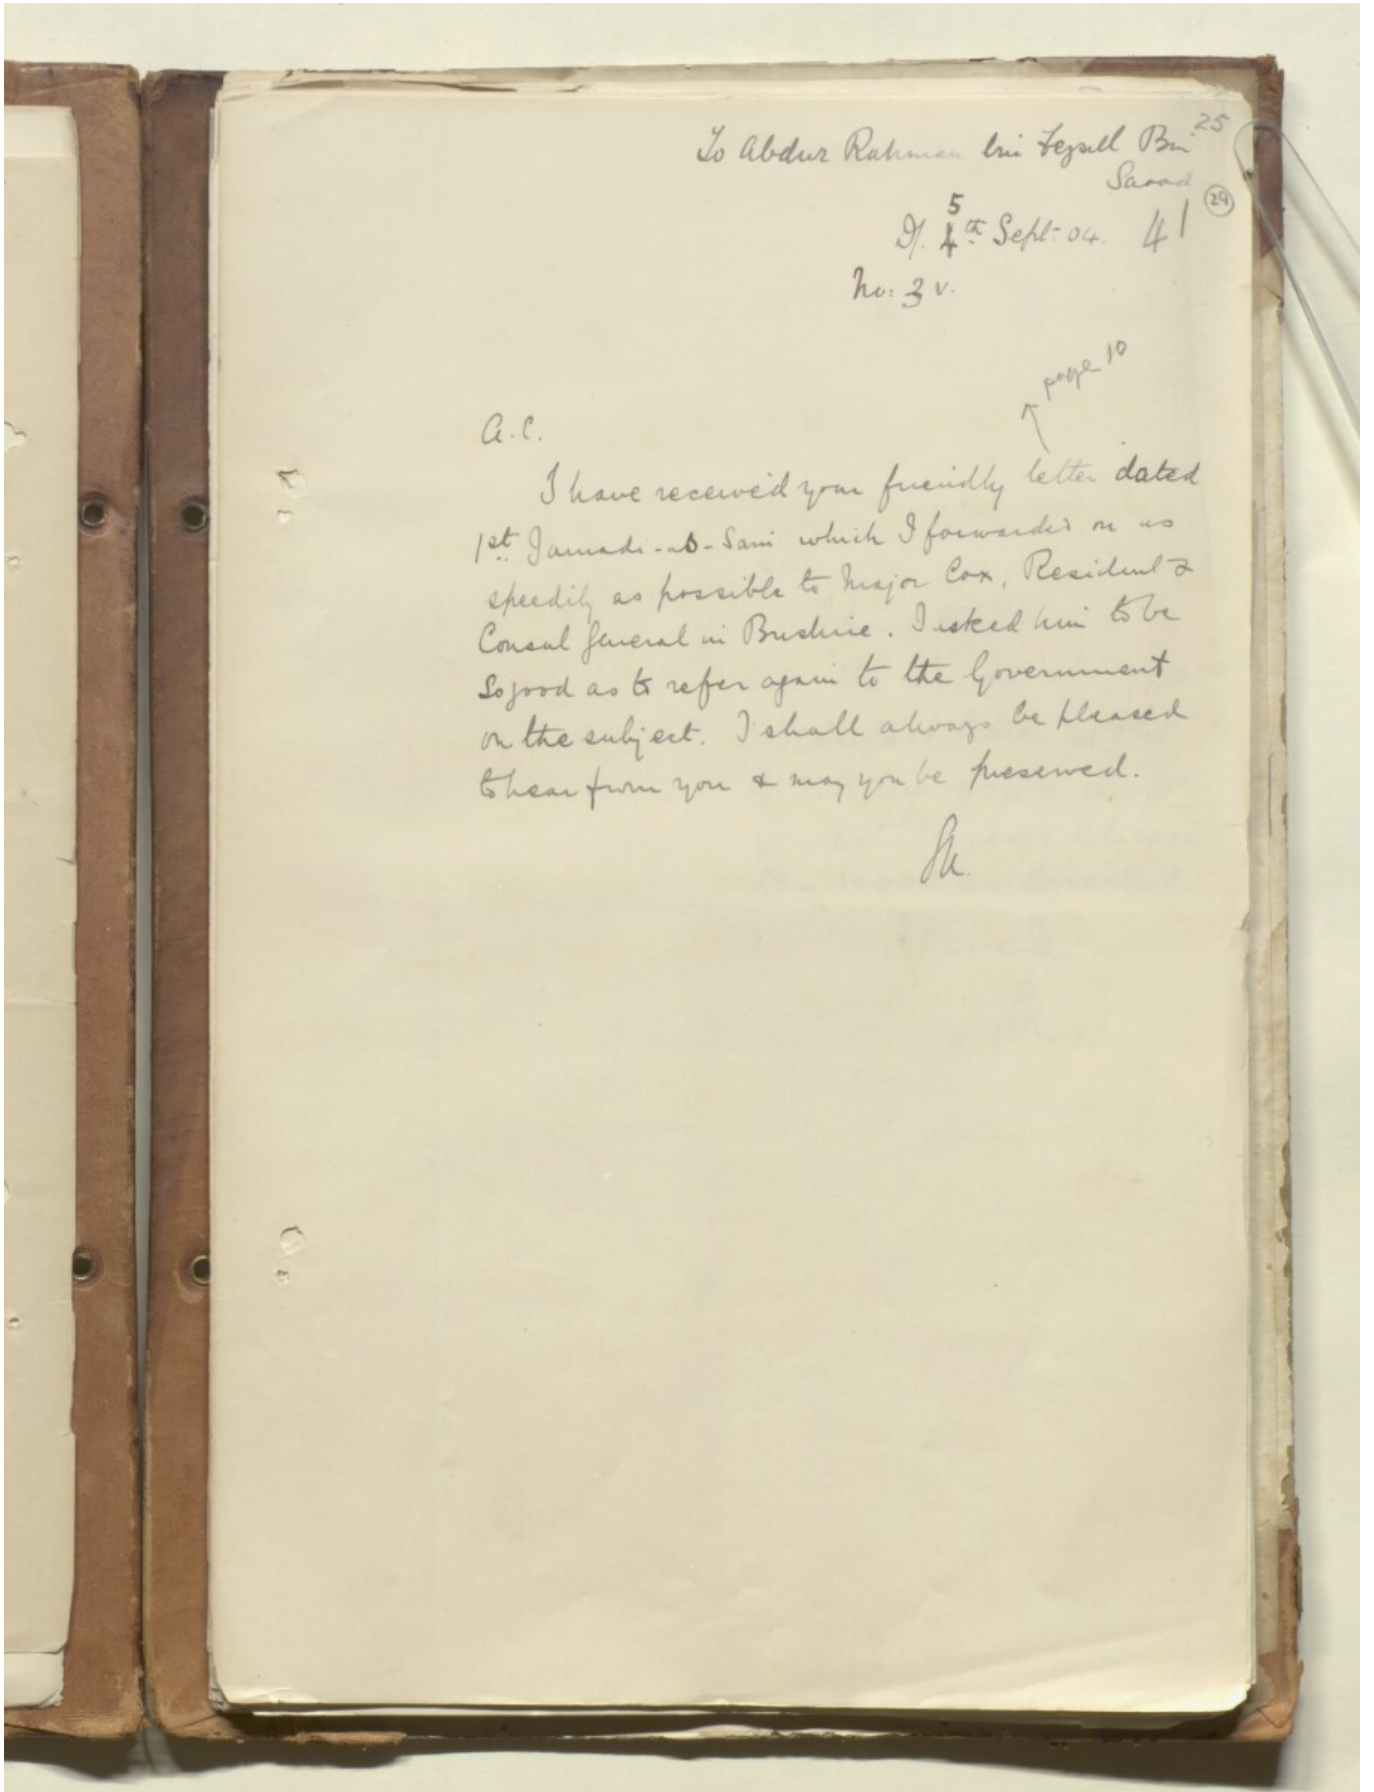 25
To Abdur Rahman bin Feysll Bin
Saood
29
5
D/. 4th Sept: 04. 41
No: 3 v.
page 10
A.C.
I have received your friendly letter dated
1st Jamadi-as-Sani which I forwarded on as
speedily as possible to Major Cox, Resident &
Consul General in Bushire. I asked him to be
so good as to refer again to the Government
on the subject. I shall always be pleased
to hear from you & may you be preserved.